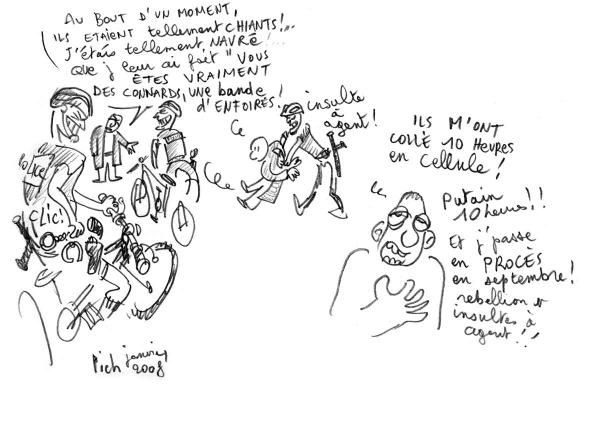 AU BOUT D'UN MOMENT,
ILS ETAIENT tellement CHIANTS!...
J'étais tellement NAVRÉ!...
Que j' leur ai fait "VOUS
ÊTES VRAIMENT
DES CONNARDS, UNE bande
d'ENFOIRÉS!
insulte
à
agent!
POLICE
CLIC!
ILS M'ONT
COLLÉ 10 HEURES
en CELLULE!
Putain
10 heures!!
Et j' passe
en PROCÈS
en septembre!
rebellion et
insultes à
agent!!
Pich janvier
2008